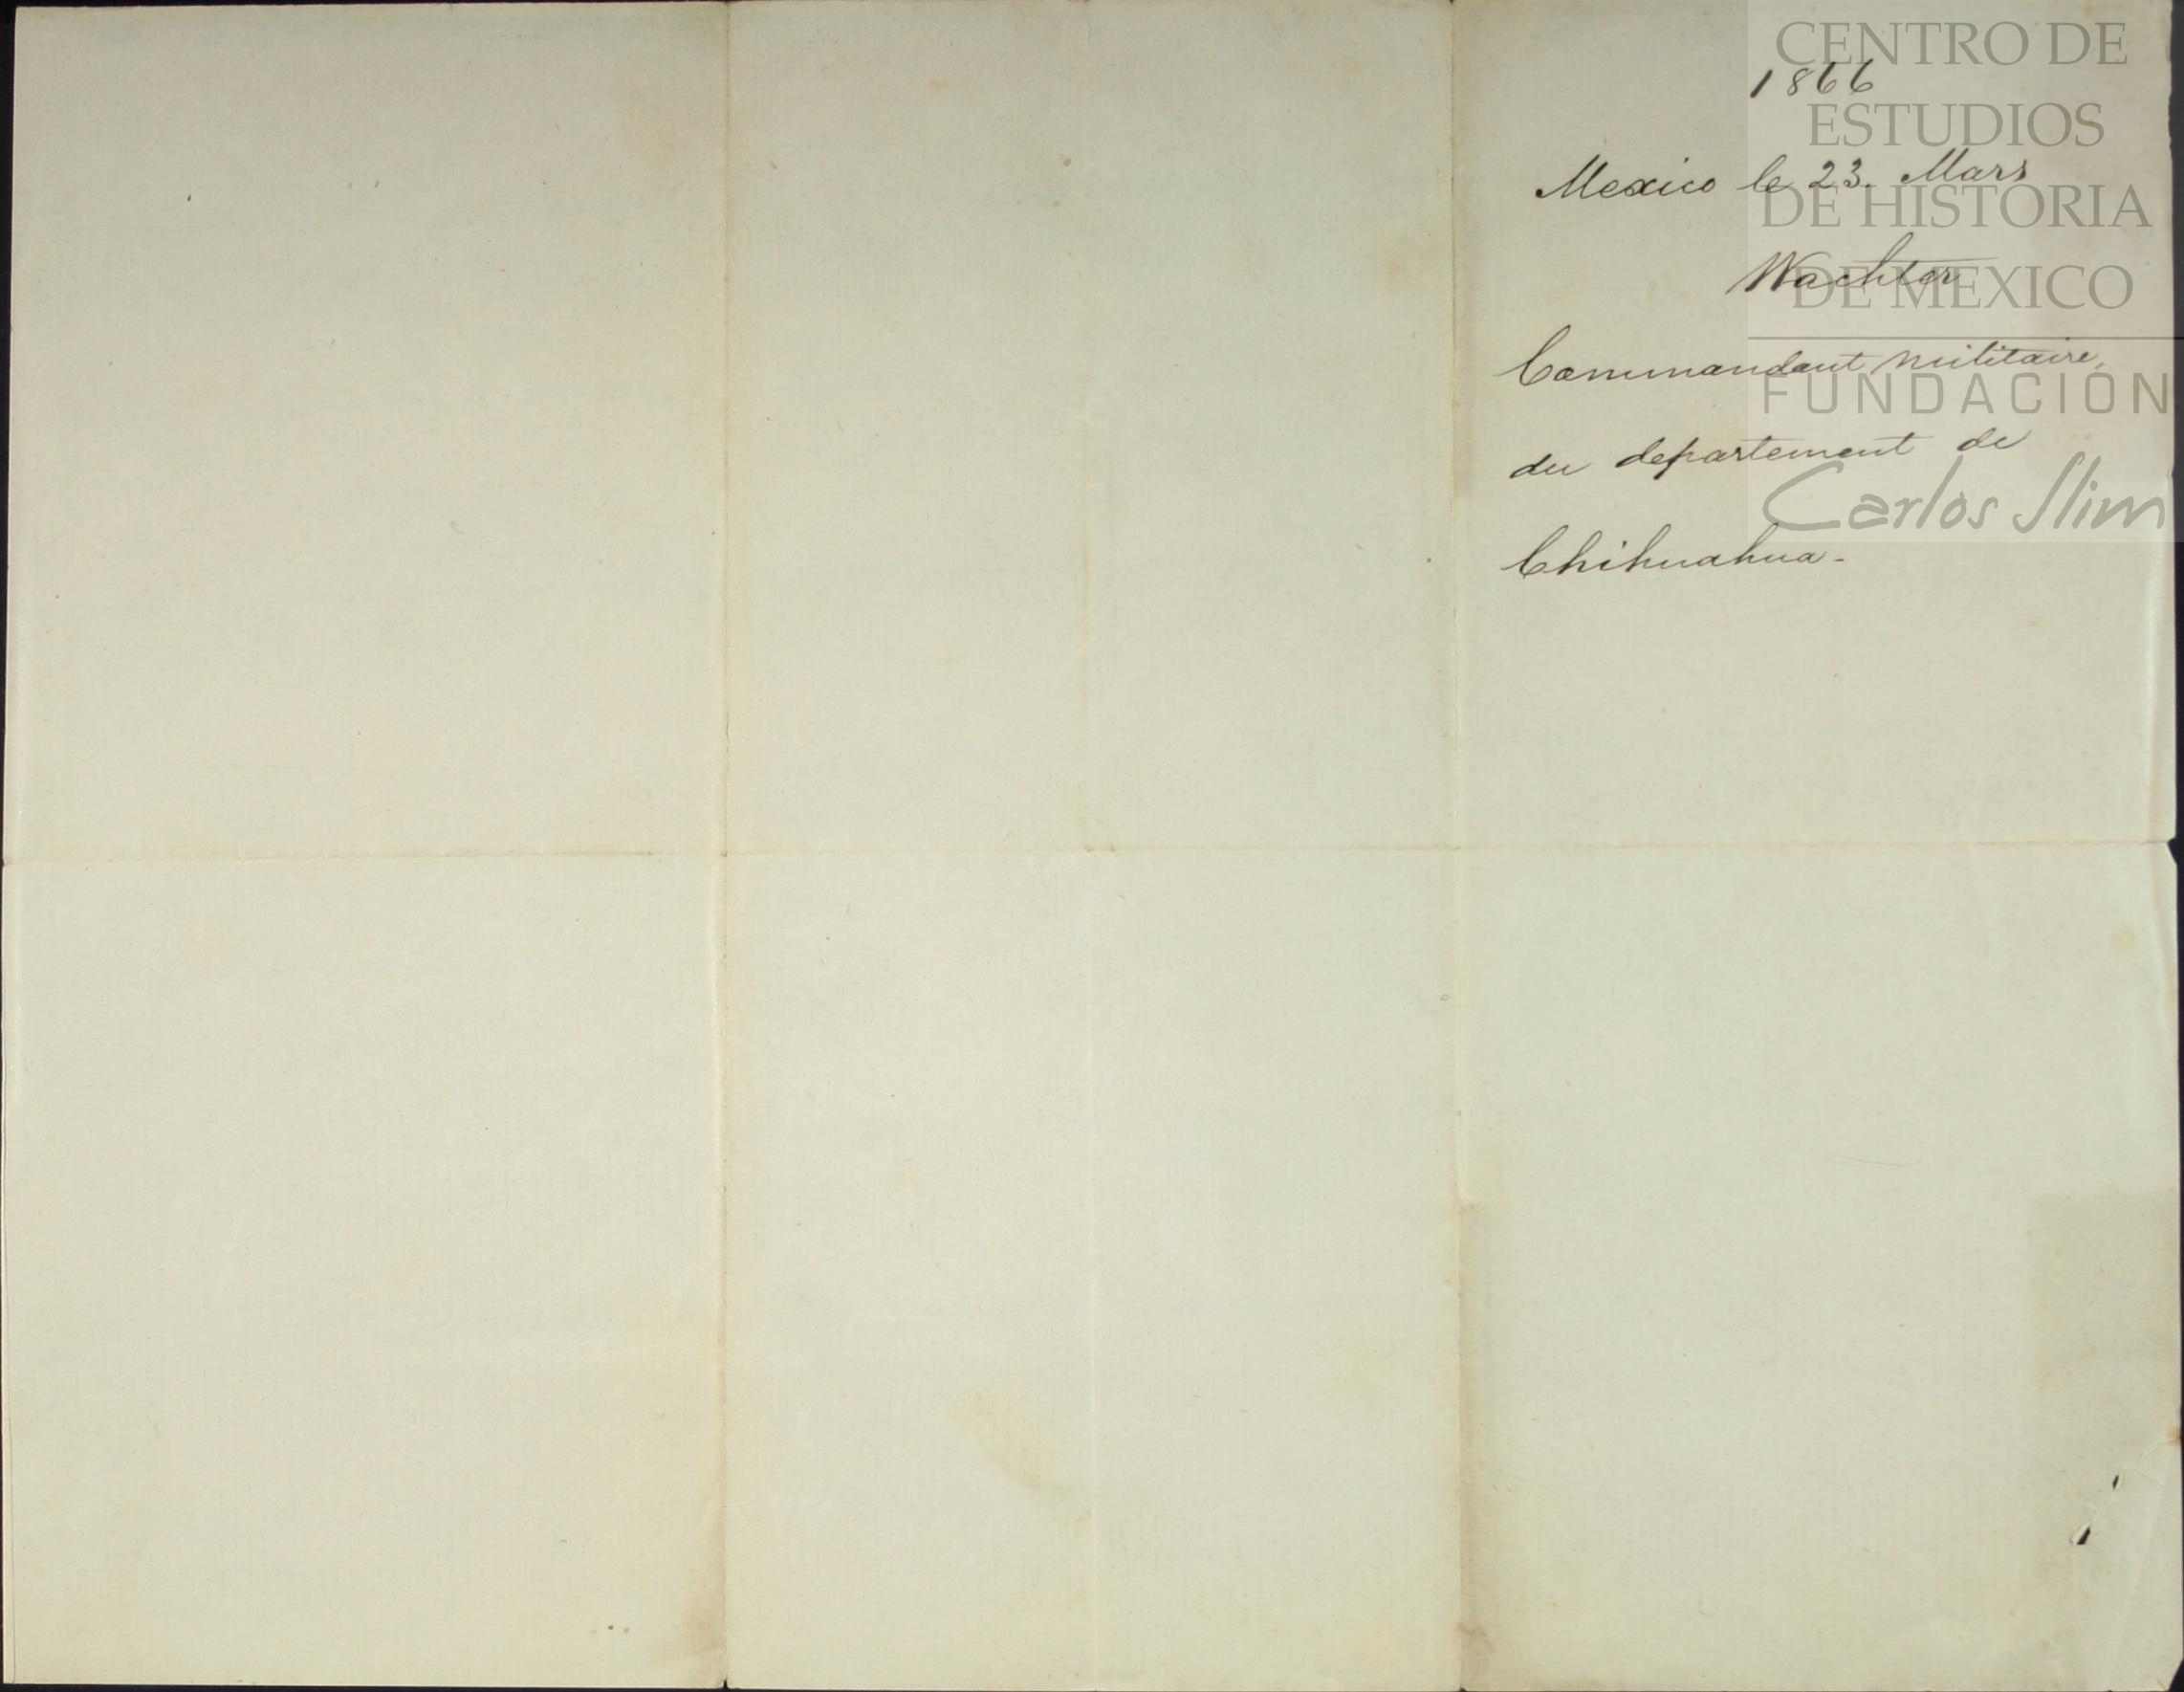 1866
Mexico le 23. Mars
Wachter
Commandant militaire,
du departement de
Chihuahua-
CENTRO DE
ESTUDIOS
DE HISTORIA
DE MEXICO
FUNDACIÓN
Carlos Slim